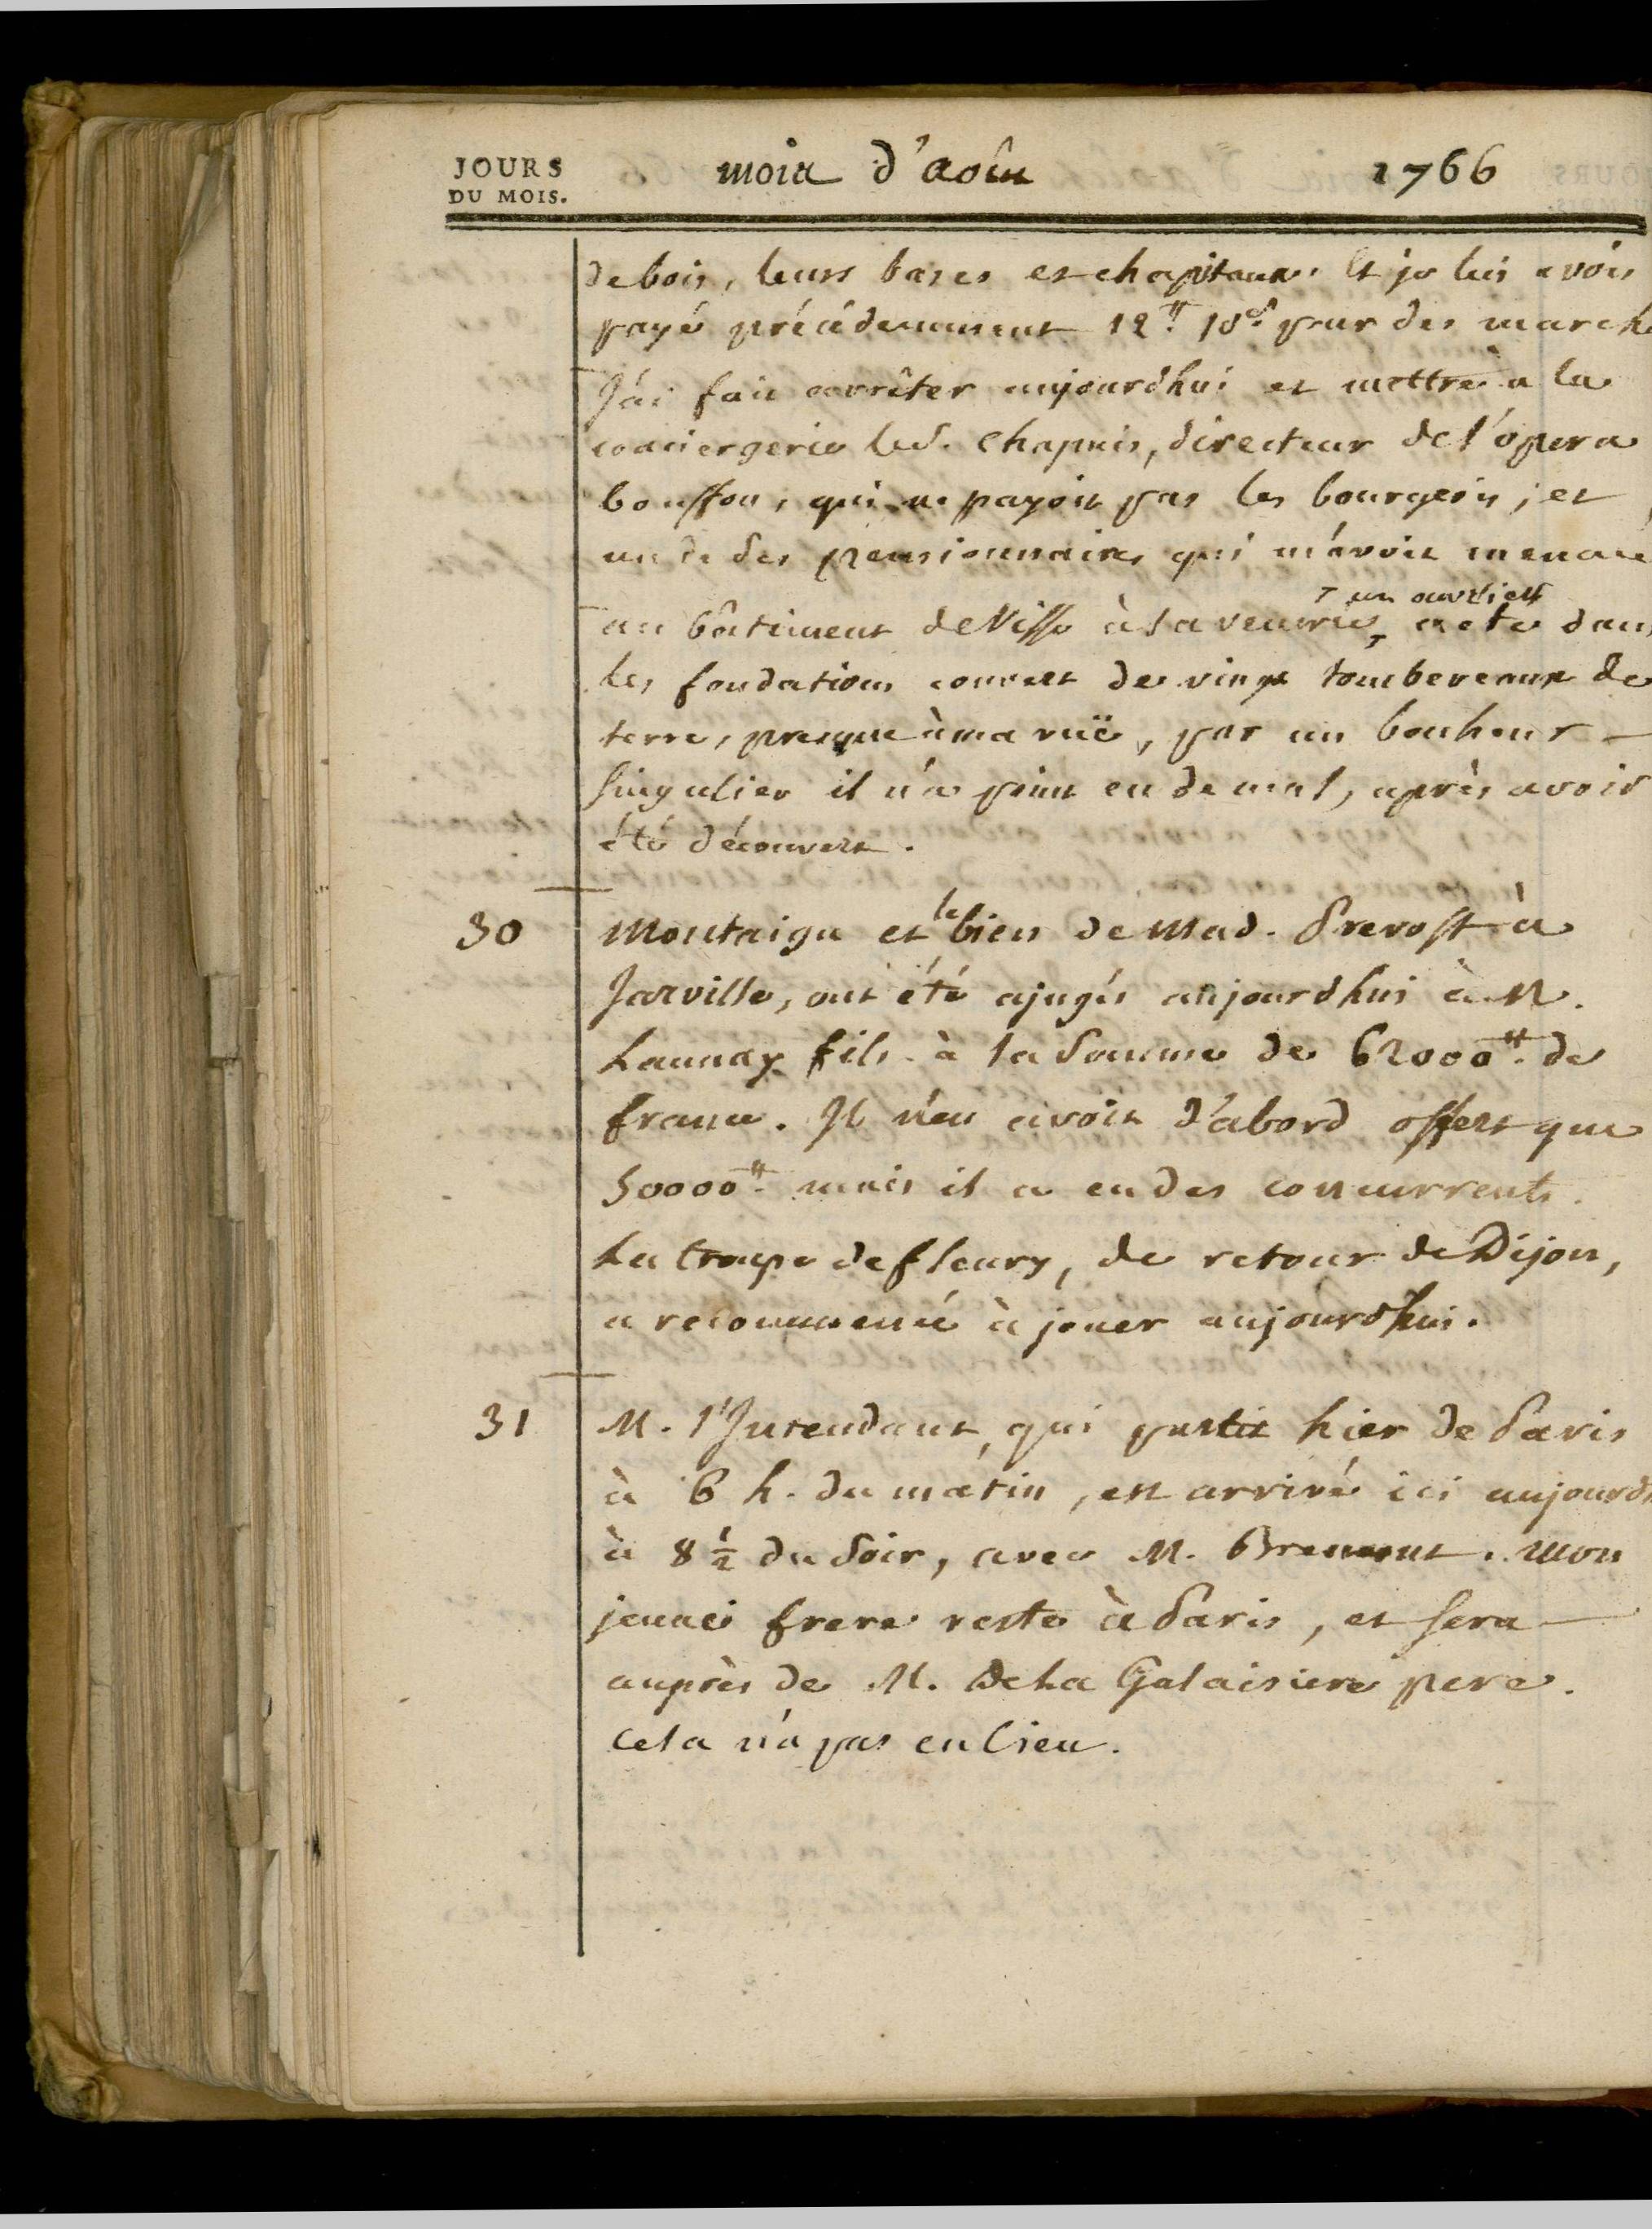 JOURS DU MOIS. mois d'août 1766
de bois, leurs bases et chapitaux. Et je lui avois
payé précédemment 12.tt 10.s pour des march
J'ai fait arrêter aujourdhui et mettre à la
conciergerie le S. Chapuis, directeur de l'opera
bouffon, qui ne payoit pas les bourgeois; et
un de ses pensionnaires qui m'avoit menacé
un ouvrier
au bâtiment de Nisse à la venerie, a eté dans
les fondations couvert de vingt tombereaux de
terre, presque à ma vuë, par un bonheur
singulier il n'a point eu de mal, après avoir
été découvert.
30 Montaigu et le bien de Mad. Prevost à
Jarville, ont été ajugés aujourdhui à M.
Launay fils à la somme de 62000tt. de
france. Il n'en avoit d'abord offert que
50000tt. mais il a eu des concurrents.
La troupe de fleury, de retour de Dijon,
a recommencé à jouer aujourdhui.
31 M. l'Intendant, qui partit hier de Paris
à 6 h. du matin, est arrivé ici aujourdh
à 8 1/2 du soir, avec M. Bremont. Mon
jeune frere reste à Paris, et sera
auprès de M. De La Galaisiere pere.
Cela n'a pas eu lieu.